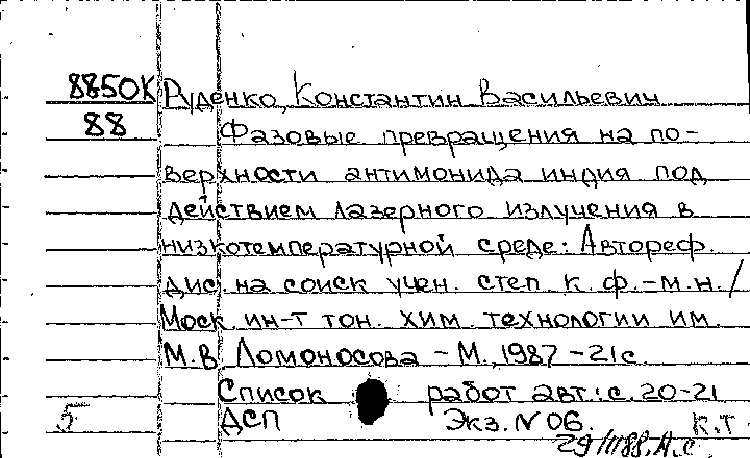 8850К Руденко, Константин Васильевич
88 Фазовые превращения на по-
верхности антимонида индия под
действием лазерного излучения в
низкотемпературной среде: Автореф.
дис. на соиск учен. степ. к. ф.-м.н. /
Моск. ин-т тон. хим. технологии им.
М.В. Ломоносова - М., 1987 - 21 с.
Список работ авт.: с. 20-21
5 ДСП Экз. N 06. К.Т
А.С.